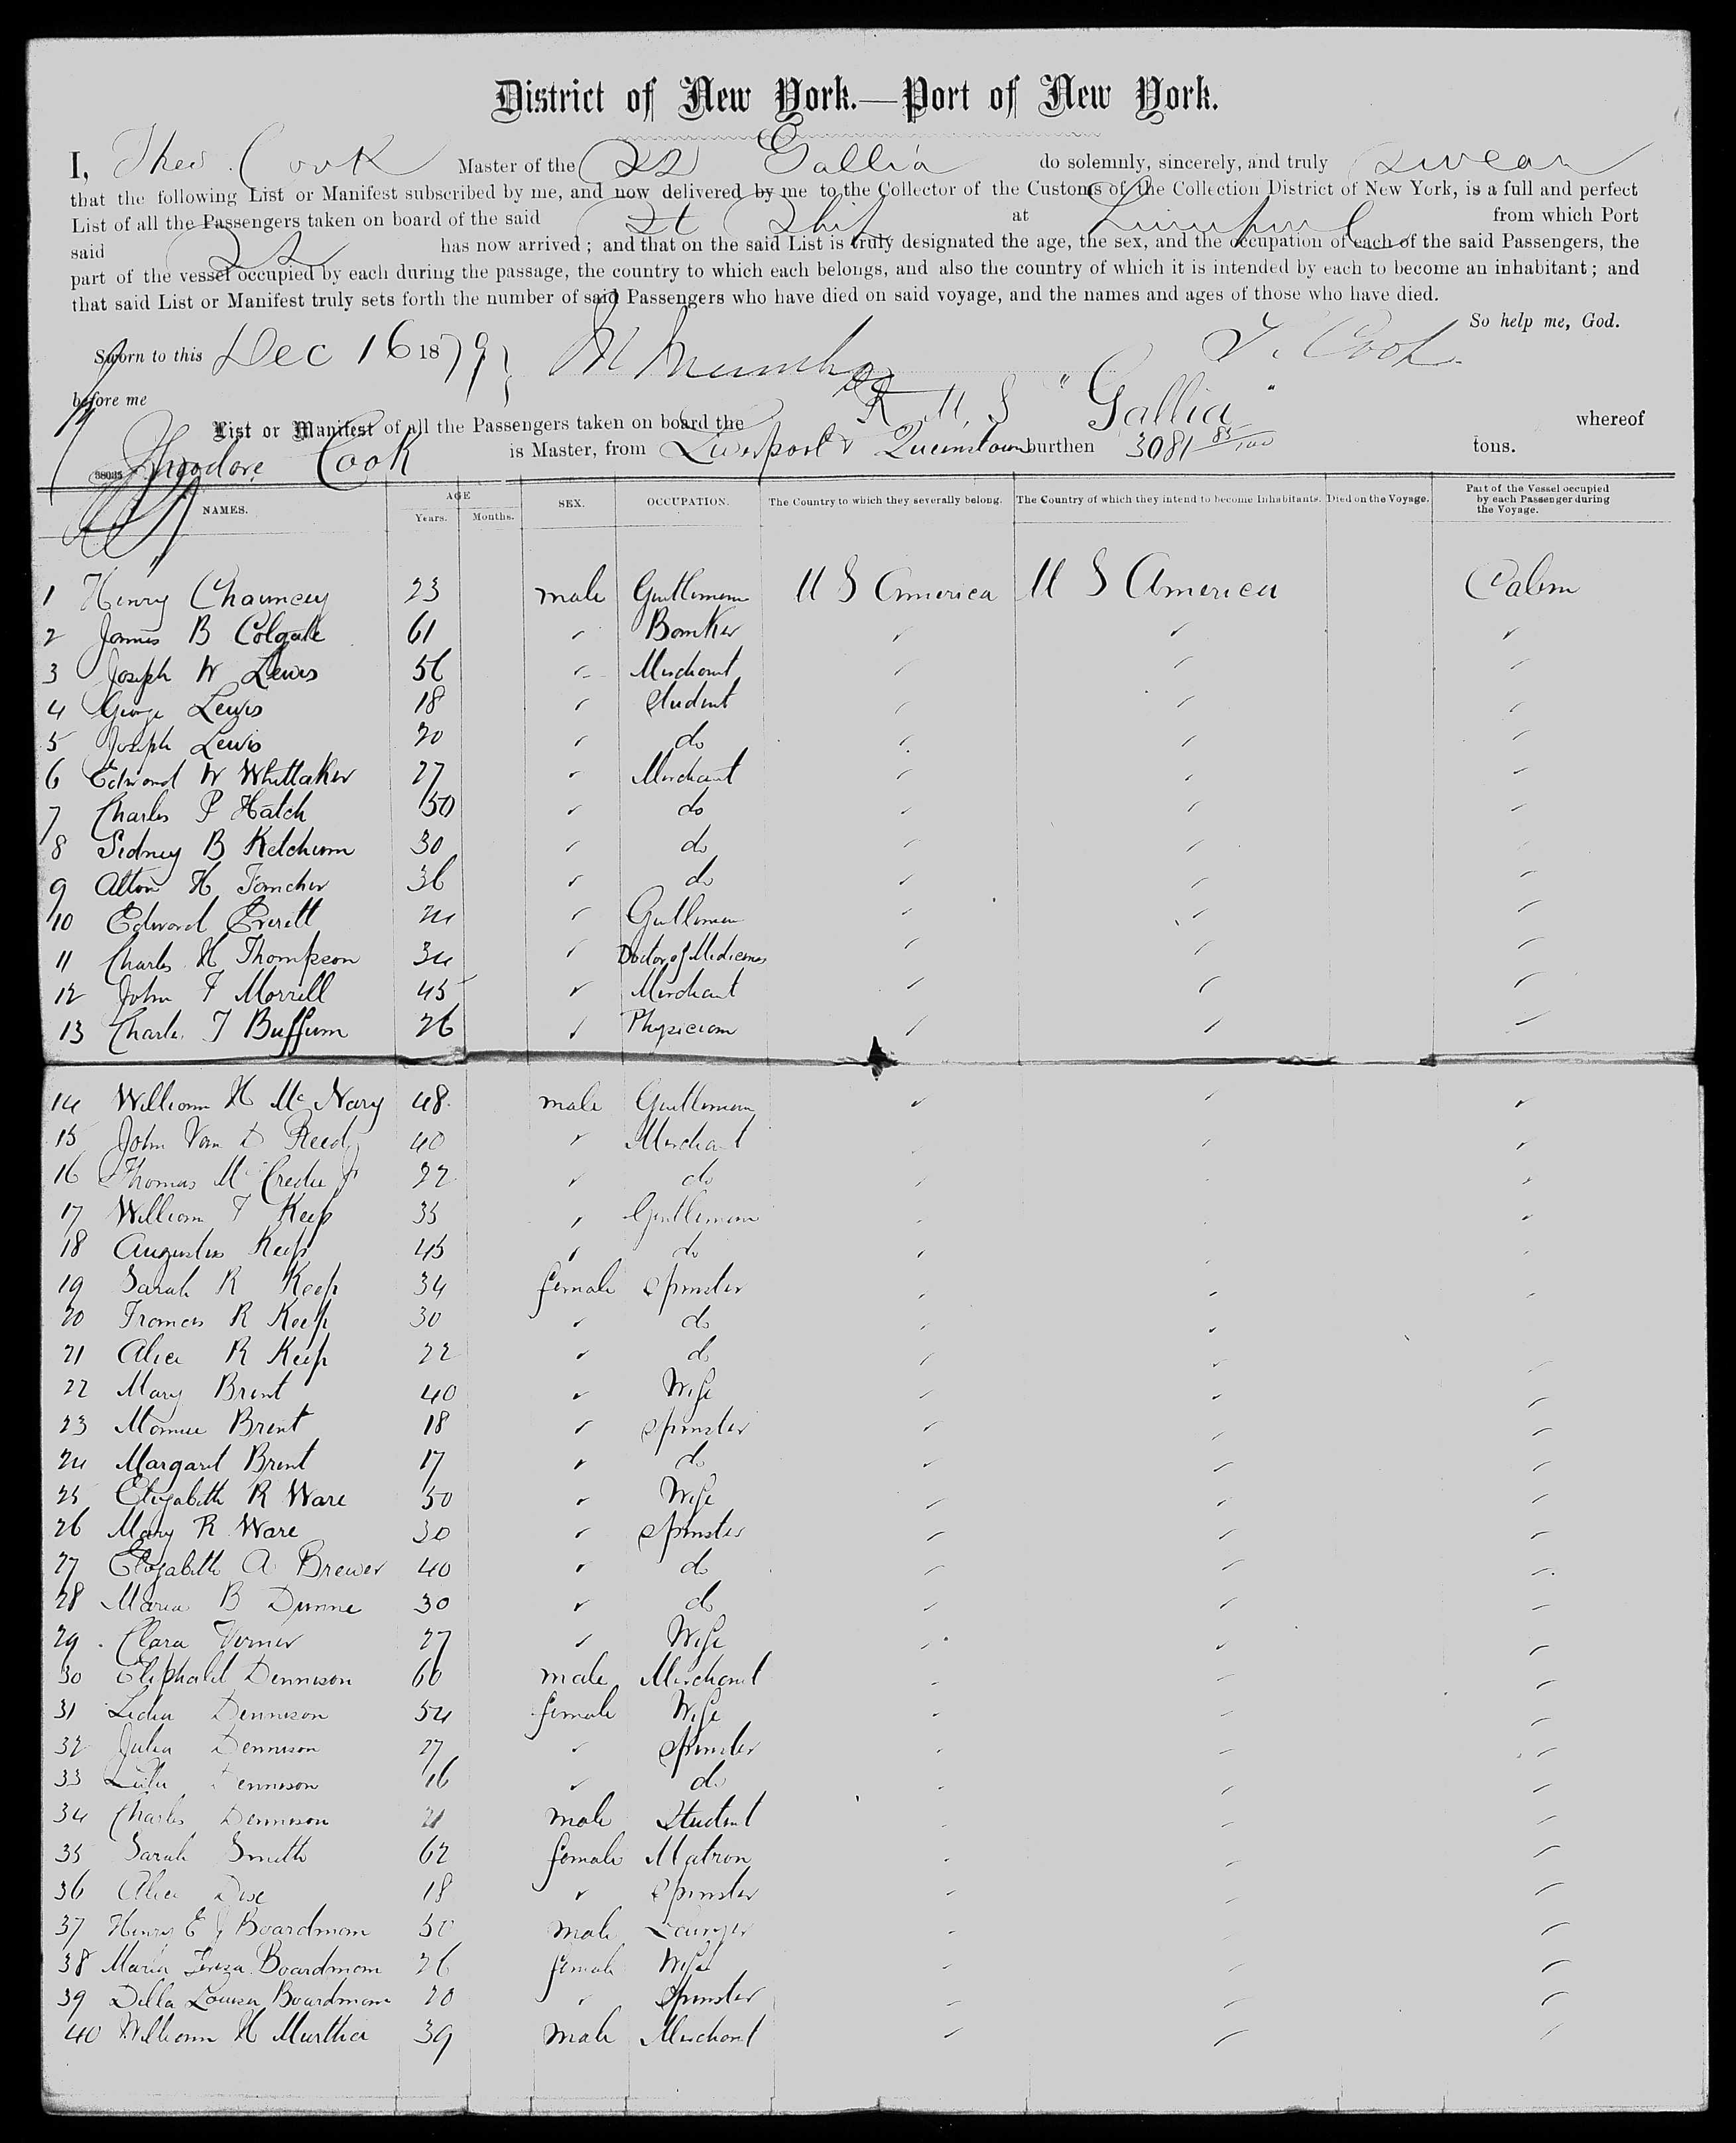 District of New York.—Port of New York.
I, Theo. Cook Master of the SS Gallia do solemnly, sincerely, and truly swear
that the following List or Manifest subscribed by me, and now delivered by me to the Collector of the Customs of the Collection District of New York, is a full and perfect
List of all the Passengers taken on board of the said St Ship at Liverpool from which Port
said SS has now arrived; and that on the said List is truly designated the age, the sex, and the occupation of each of the said Passengers, the
part of the vessel occupied by each during the passage, the country to which each belongs, and also the country of which it is intended by each to become an inhabitant; and
that said List or Manifest truly sets forth the number of said Passengers who have died on said voyage, and the names and ages of those who have died.
So help me, God.
Sworn to this Dec 16 1879 T. Cook
before me
List or Manifest of all the Passengers taken on board the R. M. S "Gallia" whereof
Theodore Cook is Master, from Liverpool & Queenstown burthen 3081 85/100 tons.
NAMES. AGE Years. Months. SEX. OCCUPATION. The Country to which they severally belong. The Country of which they intend to become Inhabitants. Died on the Voyage. Part of the Vessel occupied by each Passenger during the Voyage.
1 Henry Chauncey 23 male Gentleman U S America U S America Cabin
2 James B Colgate 61 " Banker " " "
3 Joseph W Lewis 56 " Merchant " " "
4 George Lewis 18 " Student " " "
5 Joseph Lewis 20 " do " " "
6 Edward W Whittaker 27 " Merchant " " "
7 Charles P Hatch 50 " do " " "
8 Sidney B Ketchum 30 " do " " "
9 Alton H Fancher 36 " do " " "
10 Edward Everett 24 " Gentleman " " "
11 Charles H Thompson 34 " Doctor of Medicines " " "
12 John F Morrill 45 " Merchant " " "
13 Charles T Buffum 26 " Physician " " "
14 William H Mc Nary 48 male Gentleman " " "
15 John Van D Reed 40 " Merchant " " "
16 Thomas Mc Credie Jr 22 " do " " "
17 William F Keep 35 " Gentleman " " "
18 Augustus Keep 45 " do " " "
19 Sarah R Keep 34 female Spinster " " "
20 Frances R Keep 30 " do " "
21 Alice R Keep 22 " do " " "
22 Mary Brent 40 " Wife " " "
23 Mamie Brent 18 " Spinster " " "
24 Margaret Brent 17 " do " " "
25 Elizabeth R Ware 50 " Wife " " "
26 Mary R Ware 30 " Spinster " " "
27 Elizabeth A Brewer 40 " do " " "
28 Maria B Dunne 30 " do " " "
29 Clara Verner 27 " Wife " " "
30 Eliphalet Dennison 60 male Merchant " " "
31 Lidia Dennison 54 female Wife " " "
32 Julia Dennison 27 " Spinster " " "
33 Lulu Dennison 16 " do " " "
34 Charles Dennison 21 male Student " " "
35 Sarah Smith 62 female Matron " " "
36 Alice 18 " Spinster " " "
37 Henry E J Boardman 50 male Lawyer " " "
38 Maria Tereza Boardman 26 female Wife " " "
39 Della Louisa Boardman 20 " Spinster " " "
40 William H Murtha 39 male Merchant " " "